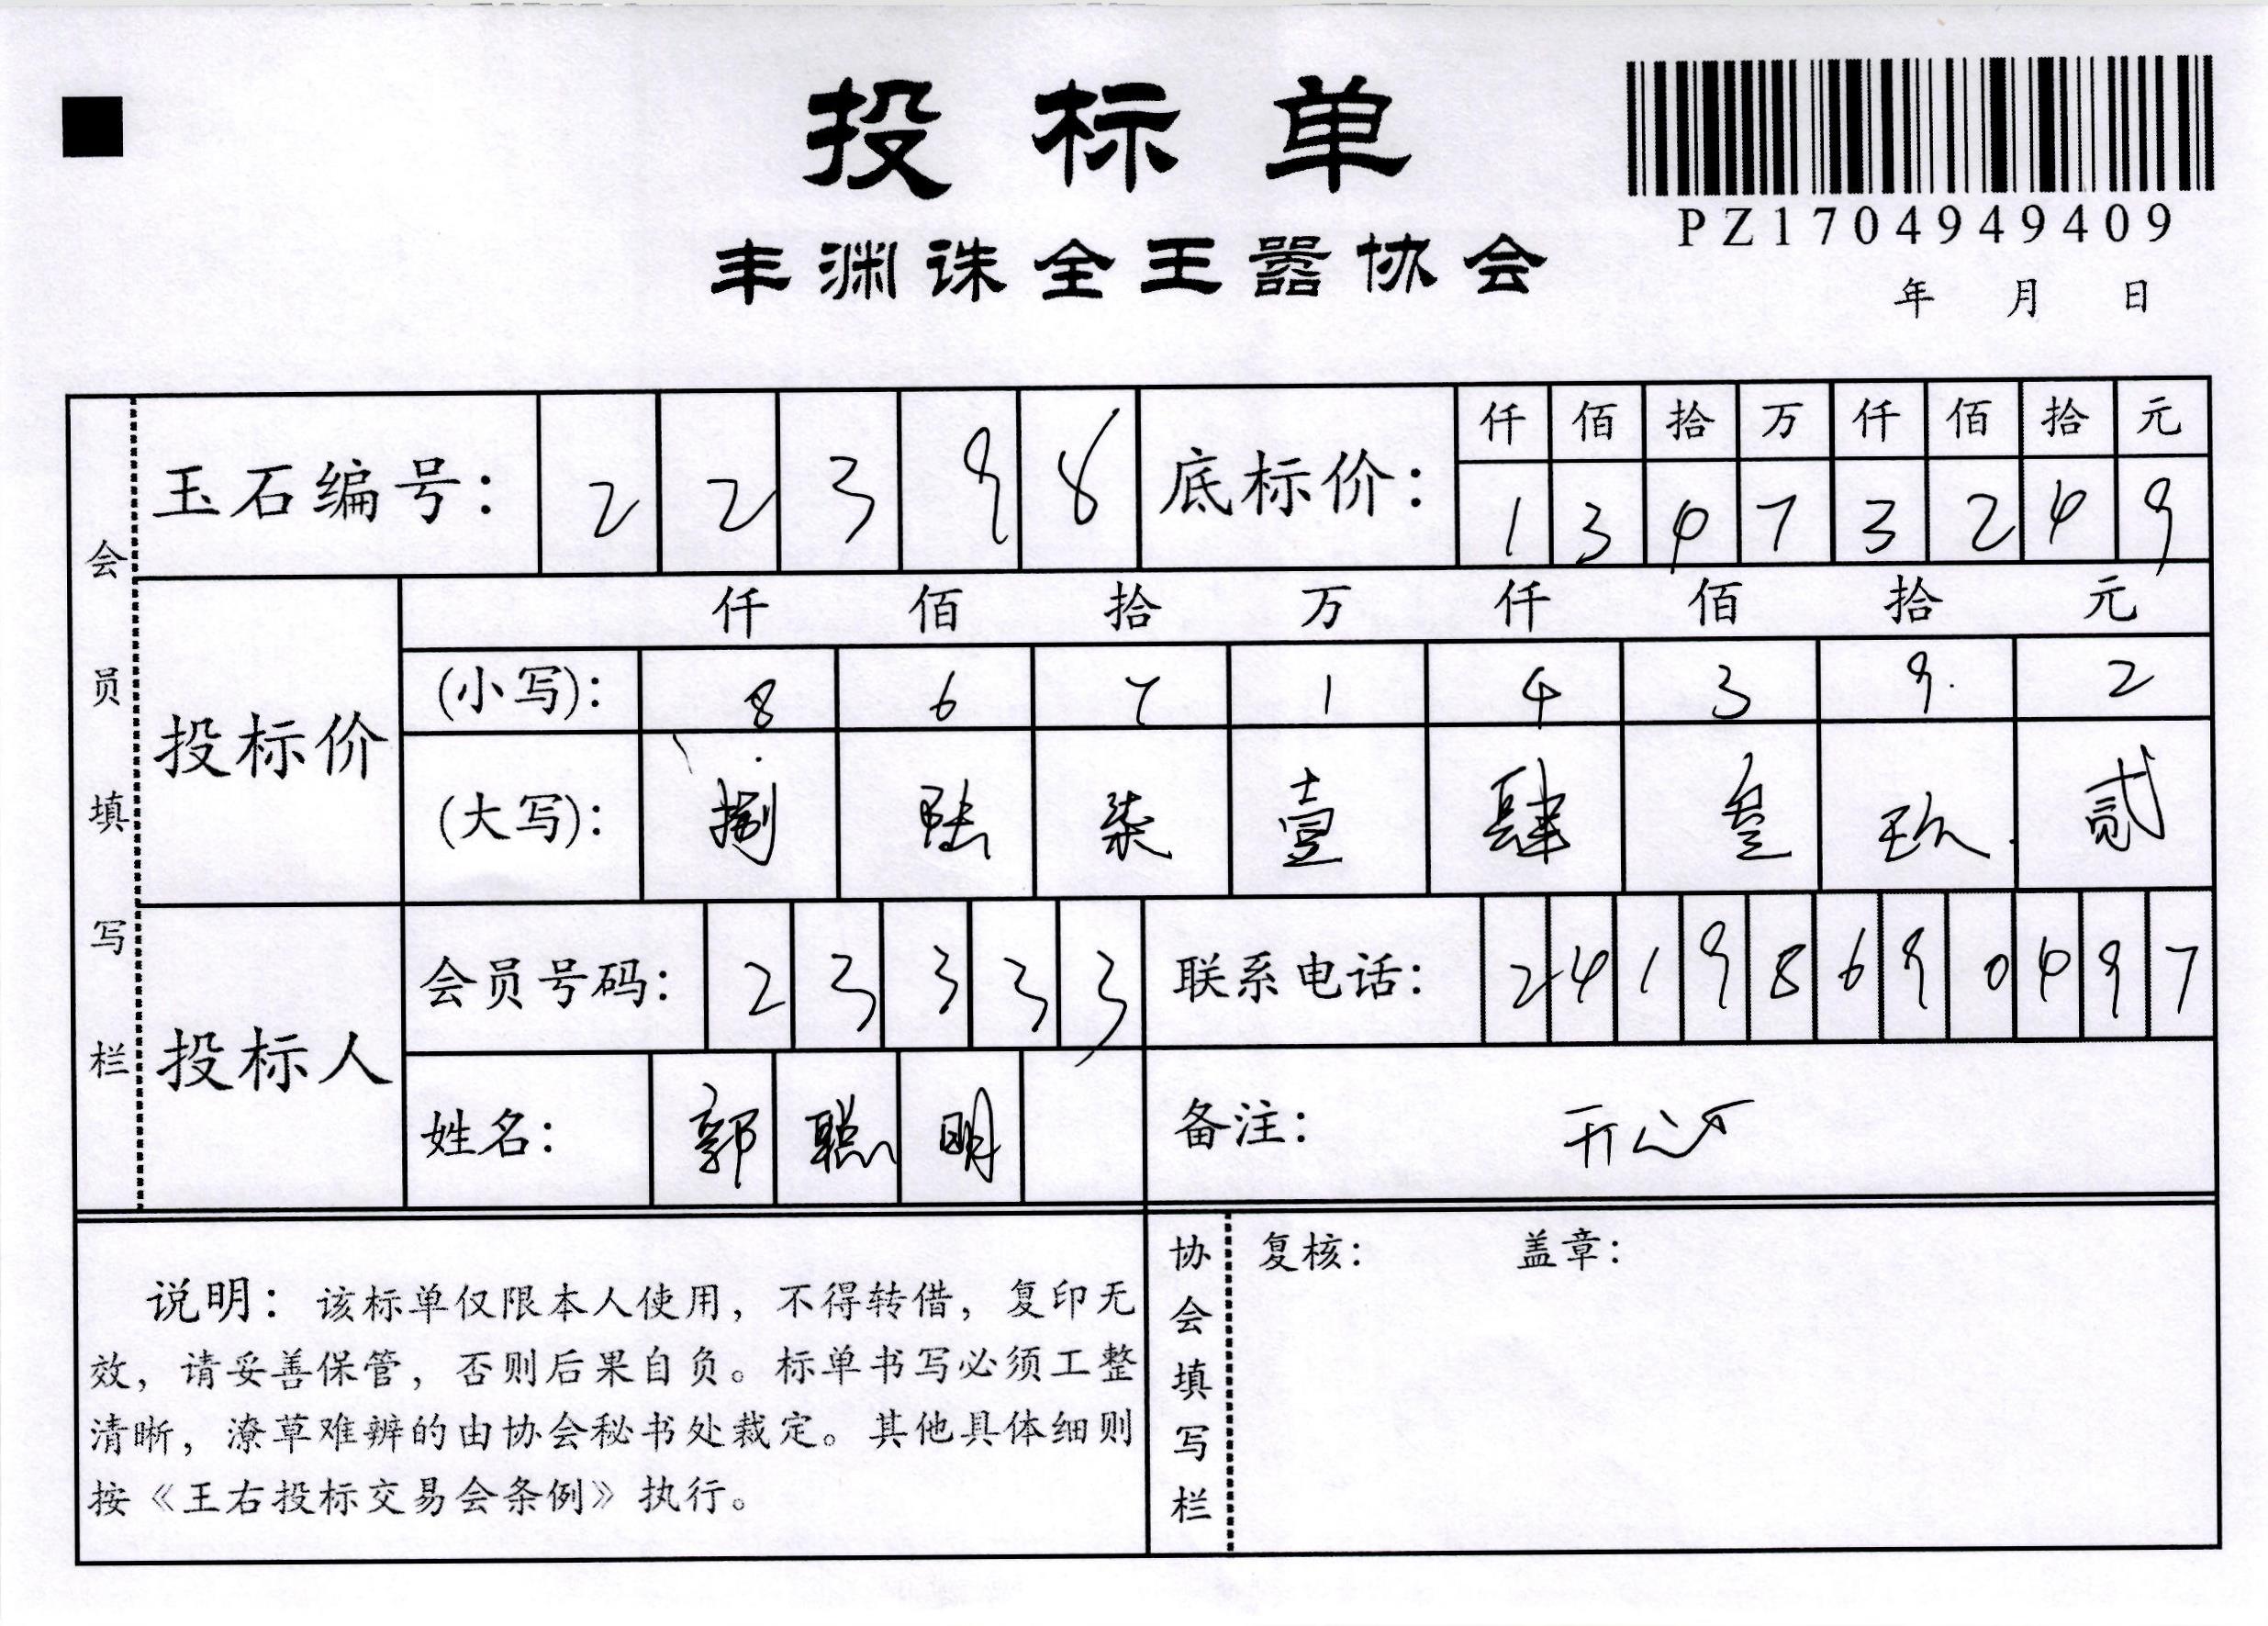 投标单
丰渊诛全王嚣协会
PZ1704949409
年 月 日
会员填写栏
玉石编号: 2 2 3 9 8
底标价: 仟 佰 拾 万 仟 佰 拾 元
1 3 4 7 3 2 4 9
投标价
仟 佰 拾 万 仟 佰 拾 元
(小写): 8 6 7 1 4 3 9 2
(大写): 捌 陆 柒 壹 肆 叁 玖 贰
投标人
会员号码: 2 3 3 3 3
联系电话: 2 4 1 9 8 6 9 0 4 9 7
姓名: 郭 聪 明
备注:
说明: 该标单仅限本人使用, 不得转借, 复印无
效, 请妥善保管, 否则后果自负。标单书写必须工整
清晰, 潦草难辨的由协会秘书处裁定。其他具体细则
按《王右投标交易会条例》执行。
协会填写栏
复核: 盖章: